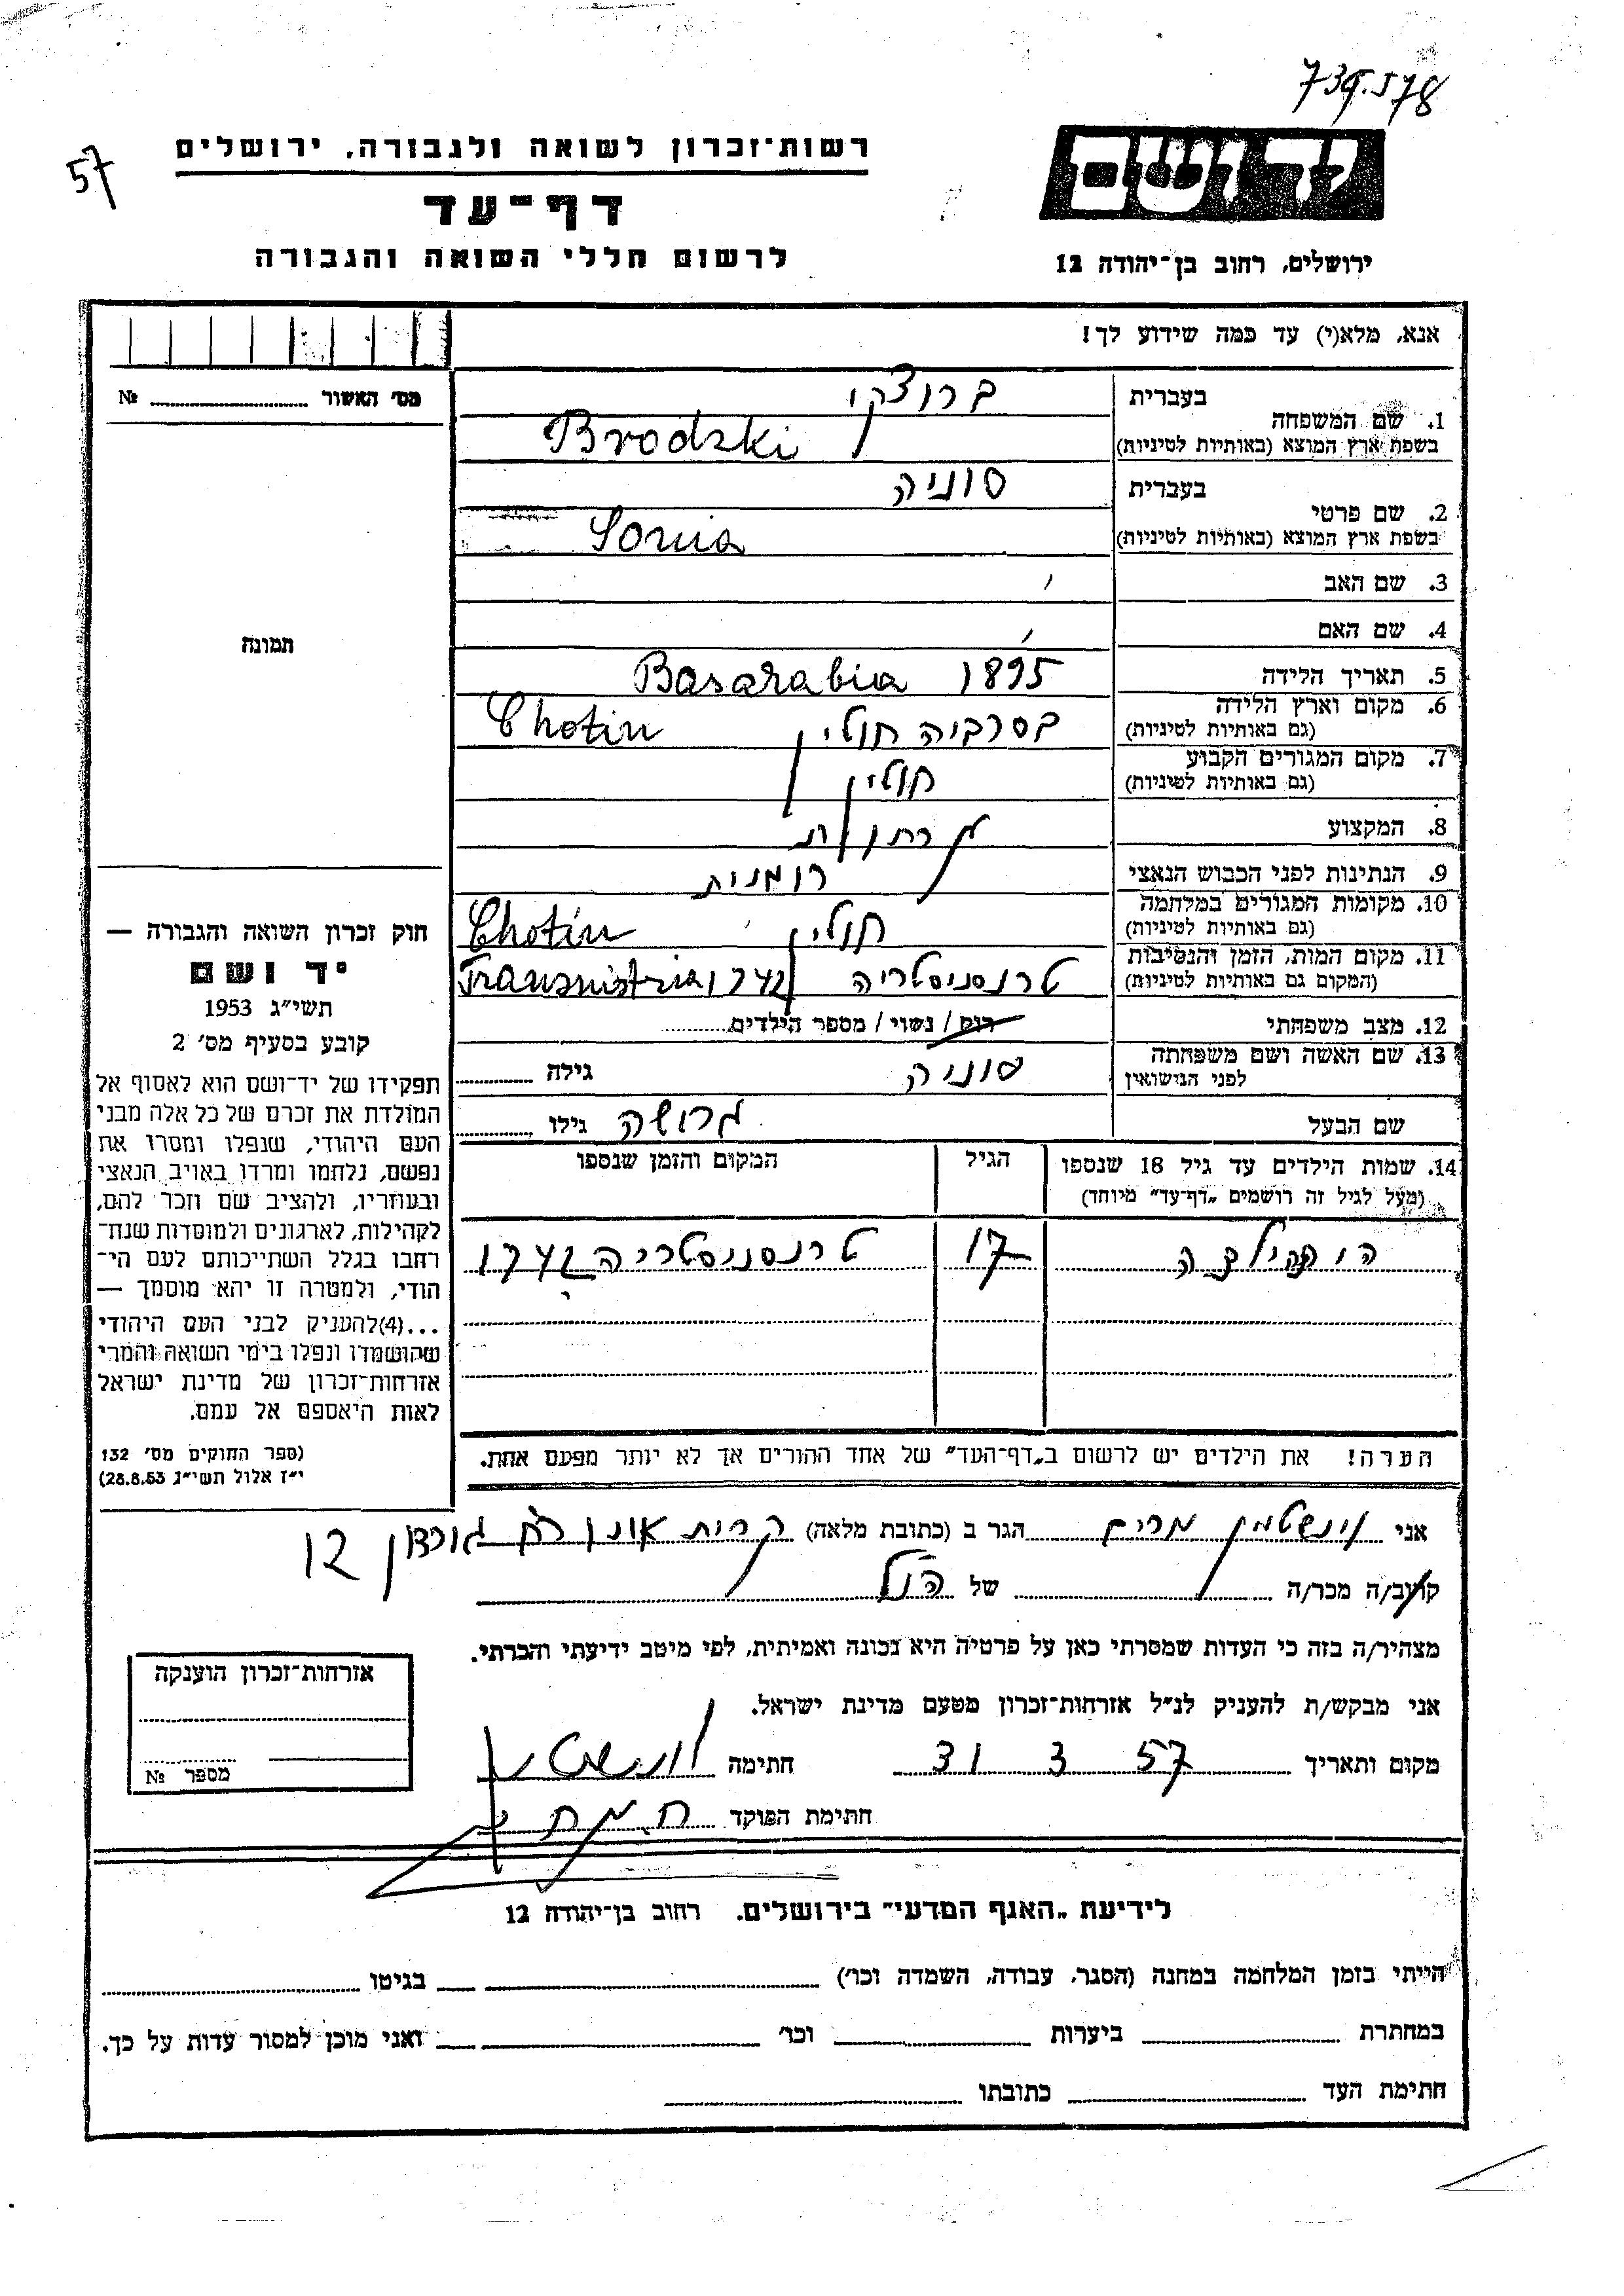 739.578
57
רשות־זכרון לשואה ולגבורה, ירושלים
יד ושם
דף־עד
לרשום חללי השואה והגבורה
ירושלים, רחוב בן־יהודה 12
אנא, מלא(י) עד כמה שידוע לך!
מס' האשור № 
1. שם המשפחה
בעברית ברוצקי
בשפת ארץ המוצא (באותיות לטיניות) Brodzki
2. שם פרטי
בעברית סוניה
בשפת ארץ המוצא (באותיות לטיניות) Sonia
3. שם האב
4. שם האם
5. תאריך הלידה 1895 Basarabia
6. מקום וארץ הלידה (גם באותיות לטיניות) בסרביה חוטין Chotin
7. מקום המגורים הקבוע (גם באותיות לטיניות) חוטין
8. המקצוע
9. הנתינות לפני הכבוש הנאצי רומנית
10. מקומות המגורים במלחמה (גם באותיות לטיניות) חוטין Chotin
11. מקום המות, הזמן והנסיבות (המקום גם באותיות לטיניות) טרנסניסטריה 1942 Transnistria
12. מצב משפחתי רוק / נשוי / מספר הילדים
13. שם האשה ושם משפחתה לפני הנישואין סוניה גילה
שם הבעל גרושה גילו
14. שמות הילדים עד גיל 18 שנספו
(מעל לגיל זה רושמים „דף־עד" מיוחד)
הגיל
המקום והזמן שנספו
17 טרנסניסטריה 1942
הערה! את הילדים יש לרשום ב„דף־העד" של אחד ההורים אך לא יותר מפעם אחת.
תמונה
חוק זכרון השואה והגבורה —
יד ושם
תשי"ג 1953
קובע בסעיף מס' 2
תפקידו של יד־ושם הוא לאסוף אל
המולדת את זכרם של כל אלה מבני
העם היהודי, שנפלו ומסרו את
נפשם, נלחמו ומרדו באויב הנאצי
ובעוזריו, ולהציב שם וזכר להם,
לקהילות, לארגונים ולמוסדות שנח־
רבו בגלל השתייכותם לעם הי־
הודי, ולמטרה זו יהא מוסמך —
...(4)להעניק לבני העם היהודי
שהושמדו ונפלו בימי השואה והמרי
אזרחות־זכרון של מדינת ישראל
לאות היאספם אל עמם.
(ספר החוקים מס' 132
י"ז אלול תשי"ג 28.8.53)
אני וינשטיין מרים הגר ב (כתובת מלאה) קרית אונו רח גורדון 12
קרוב/ה מכר/ה של הנ"ל
מצהיר/ה בזה כי העדות שמסרתי כאן על פרטיה היא נכונה ואמיתית, לפי מיטב ידיעתי והכרתי.
אני מבקש/ת להעניק לנ"ל אזרחות־זכרון מטעם מדינת ישראל.
מקום ותאריך 31 3 57 חתימה
חתימת הפוקד
אזרחות־זכרון הוענקה
מספר №
לידיעת „האגף המדעי" בירושלים. רחוב בן־יהודה 12
הייתי בזמן המלחמה במחנה (הסגר, עבודה, השמדה וכו') בגיטו
במחתרת ביערות וכו' ואני מוכן למסור עדות על כך.
חתימת העד כתובתו